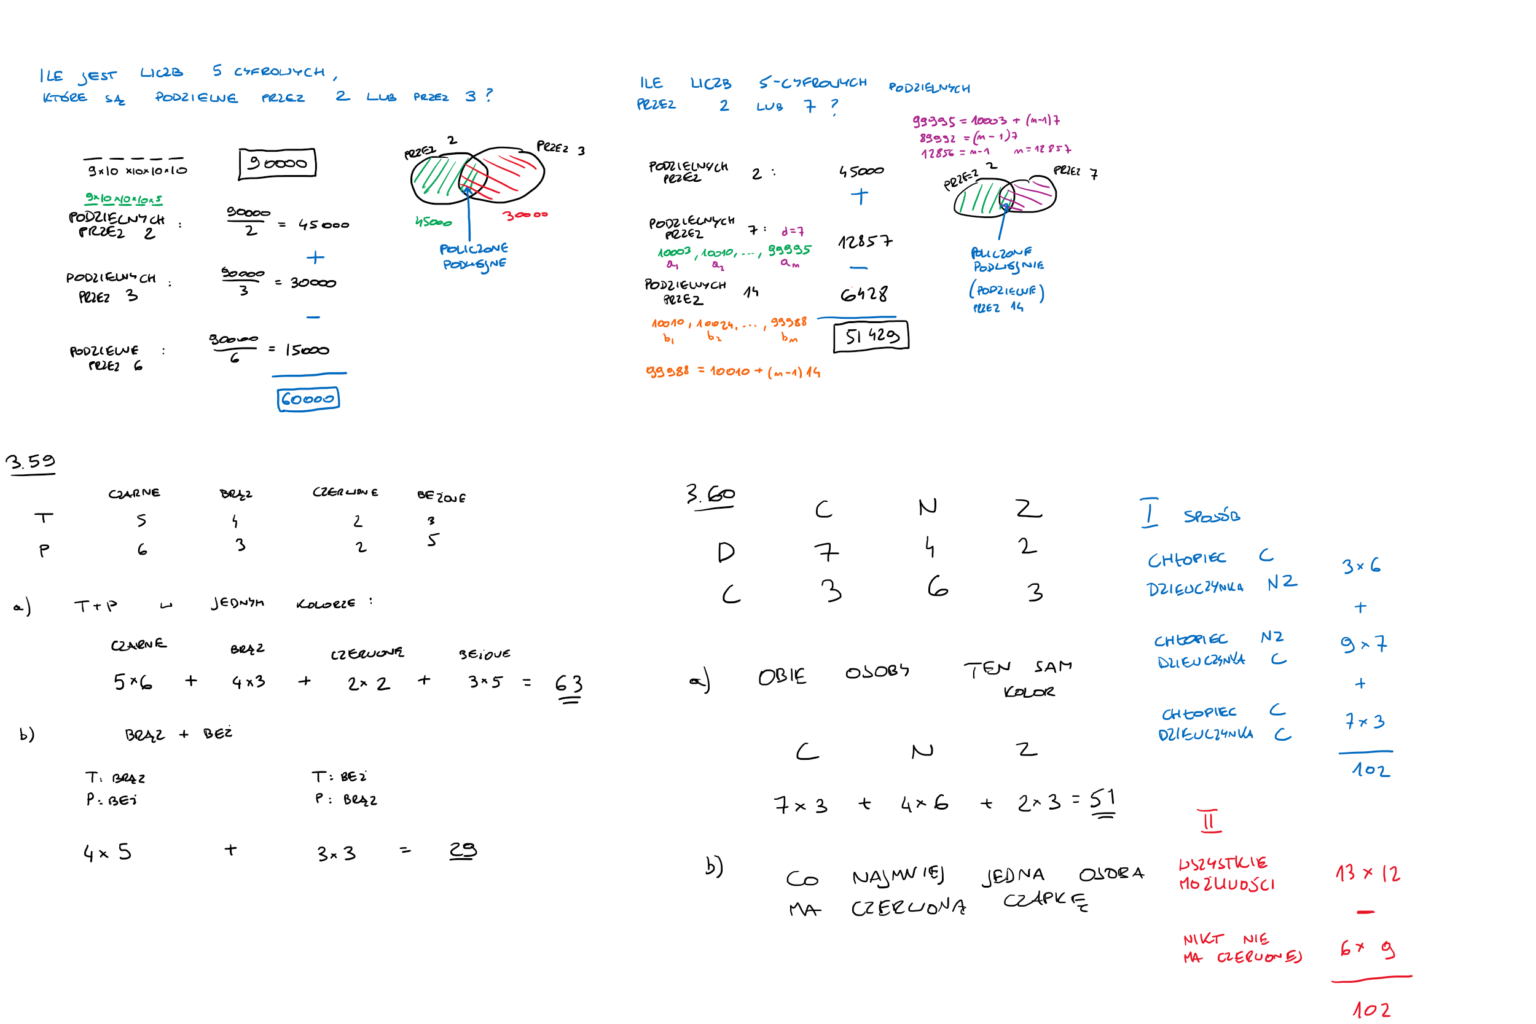 ILE JEST LICZB 5 CYFROWYCH,
KTÓRE SĄ PODZIELNE PRZEZ 2 LUB PRZEZ 3?
_ _ _ _ _
9×10×10×10×10
90000
9×10×10×10×5
PODZIELNYCH
PRZEZ 2 :
90000/2 = 45000
+
PODZIELNYCH
PRZEZ 3 :
90000/3 = 30000
−
PODZIELNE
PRZEZ 6 :
90000/6 = 15000
60000
PRZEZ 2
PRZEZ 3
45000
30000
POLICZONE
PODWÓJNE
ILE LICZB 5-CYFROWYCH PODZIELNYCH
PRZEZ 2 LUB 7?
99995 = 10003 + (n-1)7
89992 = (n-1)7
12856 = n-1 n = 12857
PODZIELNYCH
PRZEZ 2 :
45000
+
PODZIELNYCH
PRZEZ 7 : d=7
12857
10003, 10010, ..., 99995
a1 a2 an
−
PODZIELNYCH
PRZEZ 14
6428
10010, 10024, ..., 99988
b1 b2 bn
51429
99988 = 10010 + (n-1)14
PRZEZ 2
PRZEZ 7
POLICZONE
PODWÓJNIE
(PODZIELNE)
PRZEZ 14
3.59
CZARNE BRĄZ CZERWONE BEŻOWE
T 5 4 2 3
P 6 3 2 5
a) T+P W JEDNYM KOLORZE :
CZARNE BRĄZ CZERWONE BEŻOWE
5×6 + 4×3 + 2×2 + 3×5 = 63
b) BRĄZ + BEŻ
T: BRĄZ T: BEŻ
P: BEŻ P: BRĄZ
4×5 + 3×3 = 29
3.60
C N Z
D 7 4 2
C 3 6 3
a) OBIE OSOBY TEN SAM
KOLOR
C N Z
7×3 + 4×6 + 2×3 = 51
b) CO NAJMNIEJ JEDNA OSOBA
MA CZERWONĄ CZAPKĘ
I SPOSÓB
CHŁOPIEC C
DZIEWCZYNKA NZ
3×6
+
CHŁOPIEC NZ
DZIEWCZYNKA C
9×7
+
CHŁOPIEC C
DZIEWCZYNKA C
7×3
102
II
WSZYSTKIE
MOŻLIWOŚCI
13×12
−
NIKT NIE
MA CZERWONEJ
6×9
102